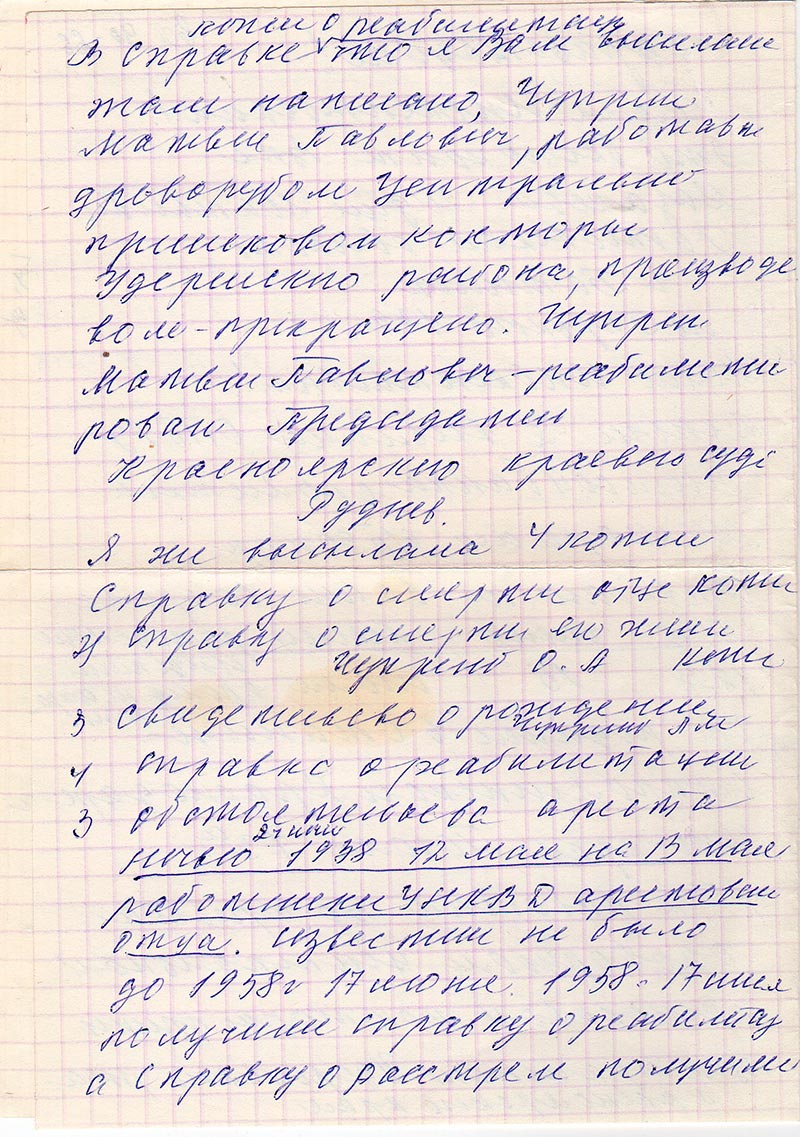 копии о реабилитации
В справке что я Вам выслала
там написано, Чуприн
Матвей Павлович, работавш
дроворубом Центрально
приисковой конторы
Удерейского района, производс
вом - прекращено. Чуприн
Матвей Павлович - реабилити
рован Председатель
Красноярского краевого суда
Руднев.
Я же выслала 4 копии
Справку о смерти отца копи
2) Справку о смерти его жены
О. А копи
3 свидетельство о рождении
Л М
4 справка о реабилитации
3 обстоятельства ареста
ночью 1938 12 мая на 13 мая
работники УНКВД арестовали
отца. известий не было
до 1958г 17 июня. 1958г 17 июня
получили справку о реабилитац
а справку о расстреле получили